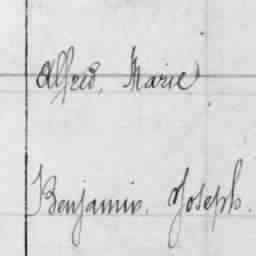 Alfred, Marie
Benjamin, Joseph.